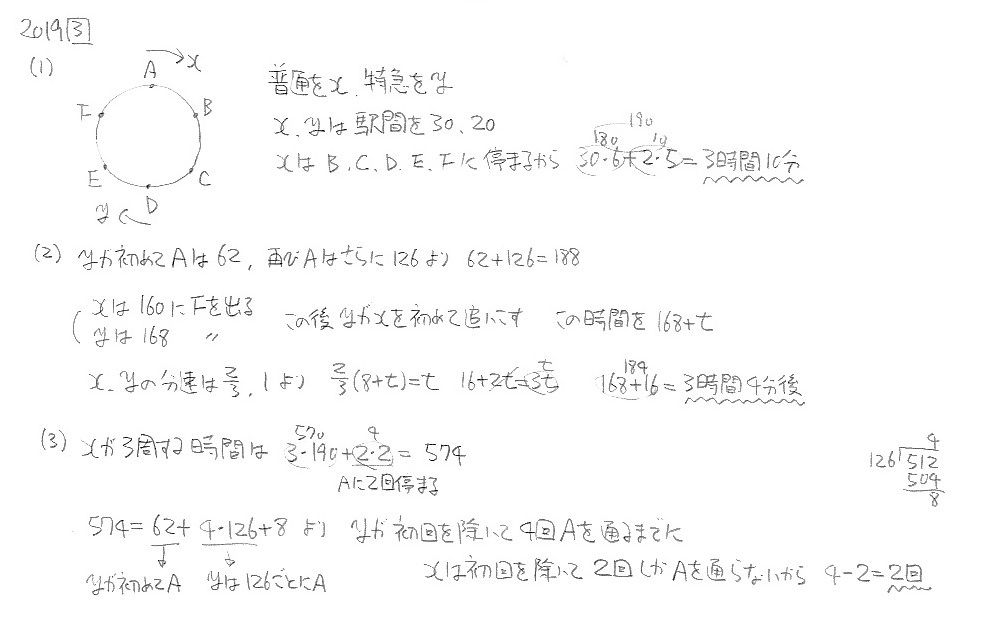 2019 3
(1)
A → x
F B
E C
y ← D
普通をx、特急をy
x、yは駅間を30、20
190
180 10
xはB、C、D、E、Fに停まるから 30・6+2・5=3時間10分
(2) yが初めてAは62、再びAはさらに126より 62+126=188
xは160にFを出る
yは168 〃
この後yがxを初めて追いこす この時間を168+t
x、yの分速は2/3、1より 2/3(8+t)=t 16+2t=3t
t
184
168+16=3時間4分後
(3) xが3周する時間は 3・190+2・2=574
570 4
Aに2回停まる
4
126)512
504
8
574=62+4・126+8より yが初回を除いて4回Aを通るまでに
yが初めてA yは126ごとにA
xは初回を除いて2回しかAを通らないから 4-2=2回